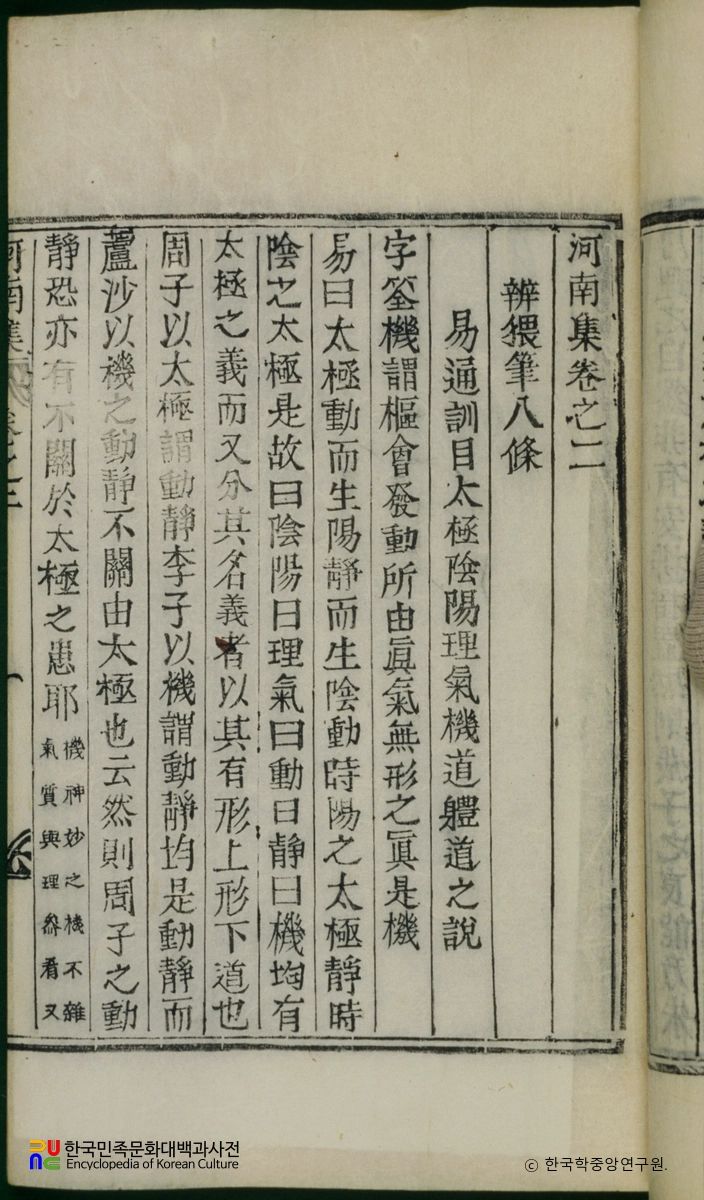 河南集卷之二
辨猥筆八條
易通訓目太極陰陽理氣機道體道之說
字筌機謂樞會發動所由眞氣無形之眞是機
易曰太極動而生陽靜而生陰動時陽之太極靜時
陰之太極是故曰陰陽曰理氣曰動曰靜曰機均有
太極之義而又分其名義者以其有形上形下道也
周子以太極謂動靜李子以機謂動靜均是動靜而
蘆沙以機之動靜不關由太極也云然則周子之動
靜恐亦有不關於太極之患耶 機神妙之機不雜
氣質與理叅看又
河南集 卷之二
한국민족문화대백과사전
Encyclopedia of Korean Culture
ⓒ 한국학중앙연구원.